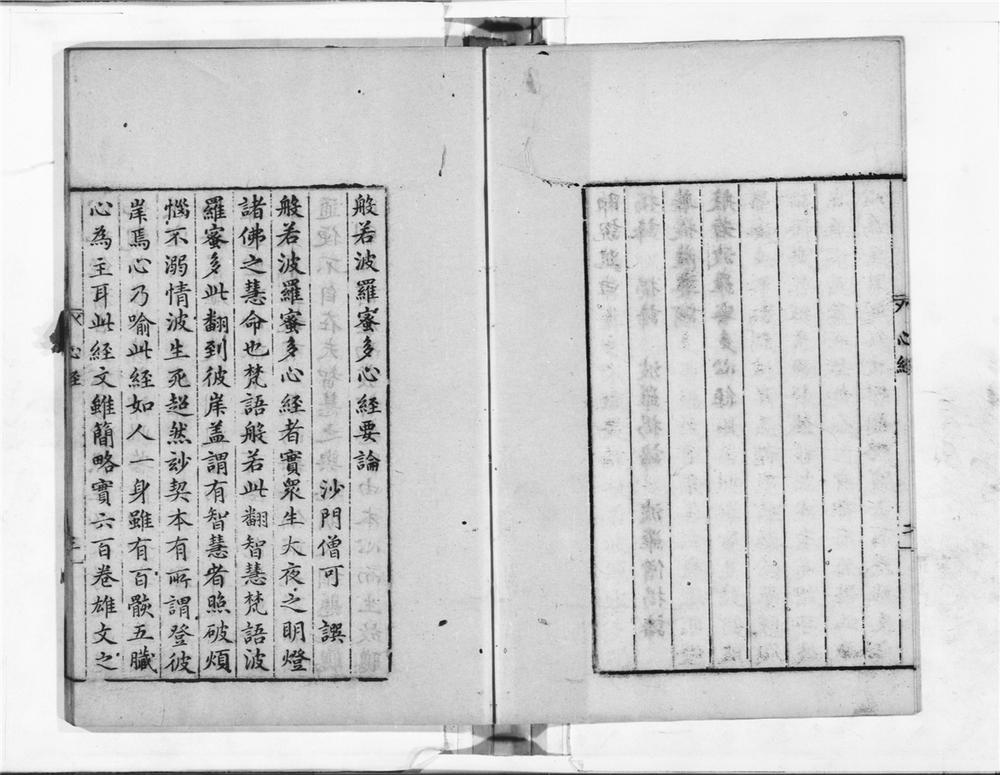 心經
二
般若波羅蜜多心經要論
沙門僧可譔
般若波羅蜜多心經者實衆生大夜之明燈
諸佛之慧命也梵語般若此翻智慧梵語波
羅蜜多此翻到彼岸盖謂有智慧者照破煩
惱不溺情波生死超然玅契本有所謂登彼
岸焉心乃喻此經如人一身雖有百骸五臟
心為主耳此經文雖簡略實六百卷雄文之
心經
三